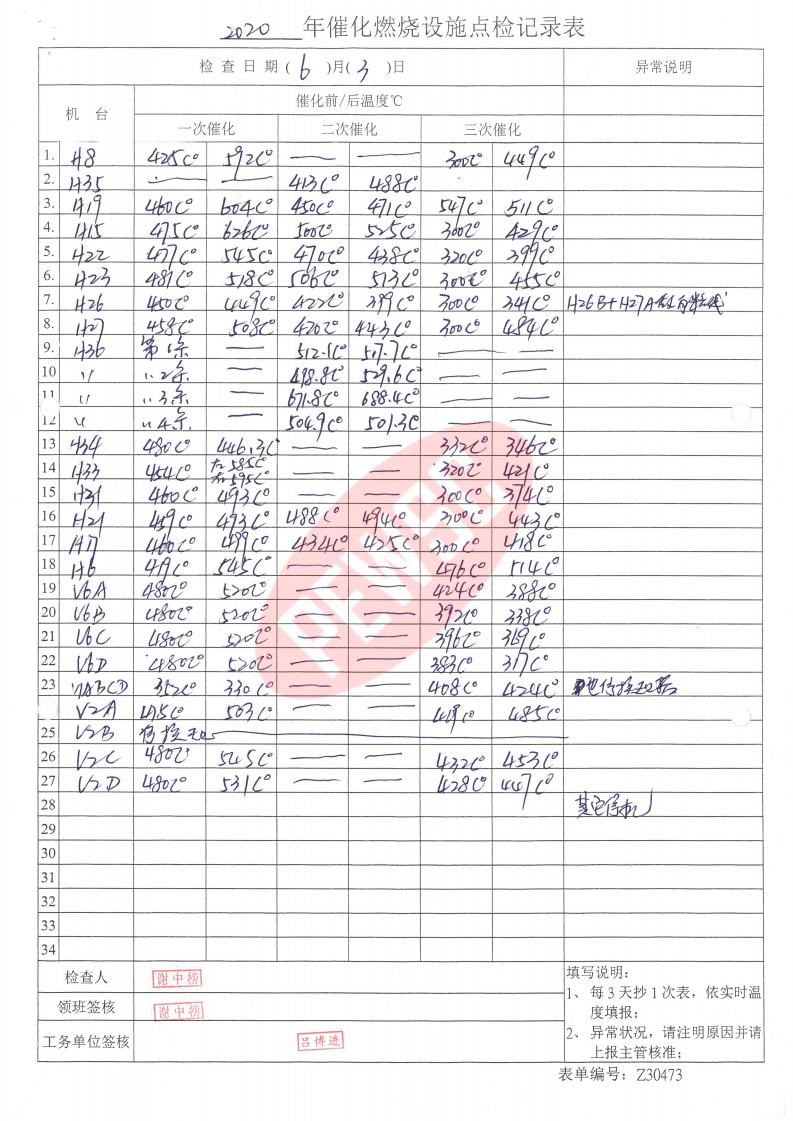 2020 年催化燃烧设施点检记录表
检查日期(6)月(3)日 异常说明
机台 催化前/后温度℃
一次催化 二次催化 三次催化
1. H8 425C° 592C° — — 300C° 449C°
2. H35 — — 413C° 488C°
3. H19 460C° 604C° 450C° 471C° 547C° 511C°
4. H15 475C° 626C° 500C° 525C° 300C° 429C°
5. H22 477C° 545C° 470C° 438C° 320C° 399C°
6. H23 481C° 518C° 506C° 513C° 300C° 455C°
7. H26 450C° 449C° 422C° 399C° 300C° 341C° H26B+H27A
8. H27 458C° 508C° 420C° 443C° 300C° 484C°
9. H36 第1条 — 512.1C° 517.7C° — —
10 〃 〃2条 — 498.8C° 529.6C° — —
11 〃 〃3条 — 671.8C° 688.4C° — —
12 〃 〃4条 — 504.9C° 501.3C° — —
13 H34 480C° 446.3C° — — 332C° 346C°
14 H33 454C° 左585C° 右595C° — — 320C° 421C°
15 H31 460C° 493C° — — 300C° 374C°
16 H21 459C° 473C° 488C° 494C° 300C° 443C°
17 H17 460C° 499C° 434C° 425C° 300C° 418C°
18 H6 419C° 545C° — — 476C° 514C°
19 V6A 480C° 520C° — — 424C° 388C°
20 V6B 480C° 520C° — — 392C° 338C°
21 V6C 480C° 520C° — — 396C° 319C°
22 V6D 480C° 520C° — — 383C° 317C°
23 352C° 330C° — — 408C° 424C°
V2A 495C° 503C° — — 419C° 485C°
25 V2B
26 V2C 480C° 545C° — — 432C° 453C°
27 V2D 480C° 531C° — — 428C° 447C°
28 其它停机
29
30
31
32
33
34
PEWISC
检查人 谢中榜
领班签核 谢中榜
工务单位签核 吕博进
填写说明：
1、每3天抄1次表，依实时温
度填报；
2、异常状况，请注明原因并请
上报主管核准；
表单编号：Z30473